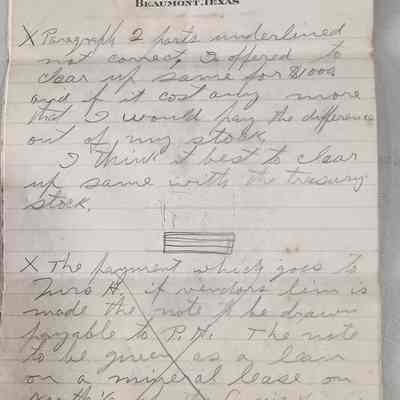 BEAUMONT, TEXAS
X Paragraph 2 parts underlined
not correct, I offered to
clear up same for $1000
and if it cost any more
that I would pay the difference
out of my stock.
I think it best to clear
up same with the treasury
stock.
X The payment which goes to
Mrs H. if vendors lien is
made the note to be drawn
payable to P. H. The note
to be given as a loan
on a mineral lease on